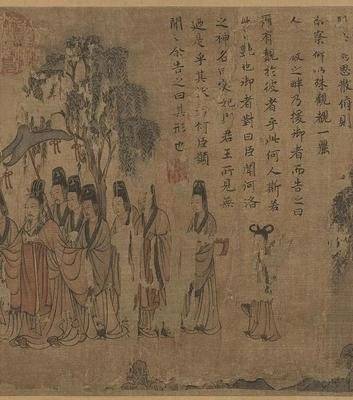 思散俯則
未察仰以殊觀覩一麗
人之畔乃援御者而告之曰
爾有覿於彼者乎此何人斯若
此之艷也御者對曰臣聞河洛
之神名曰宓妃則君王所見無
迺是乎其狀若何臣願
聞之余告之曰其形也